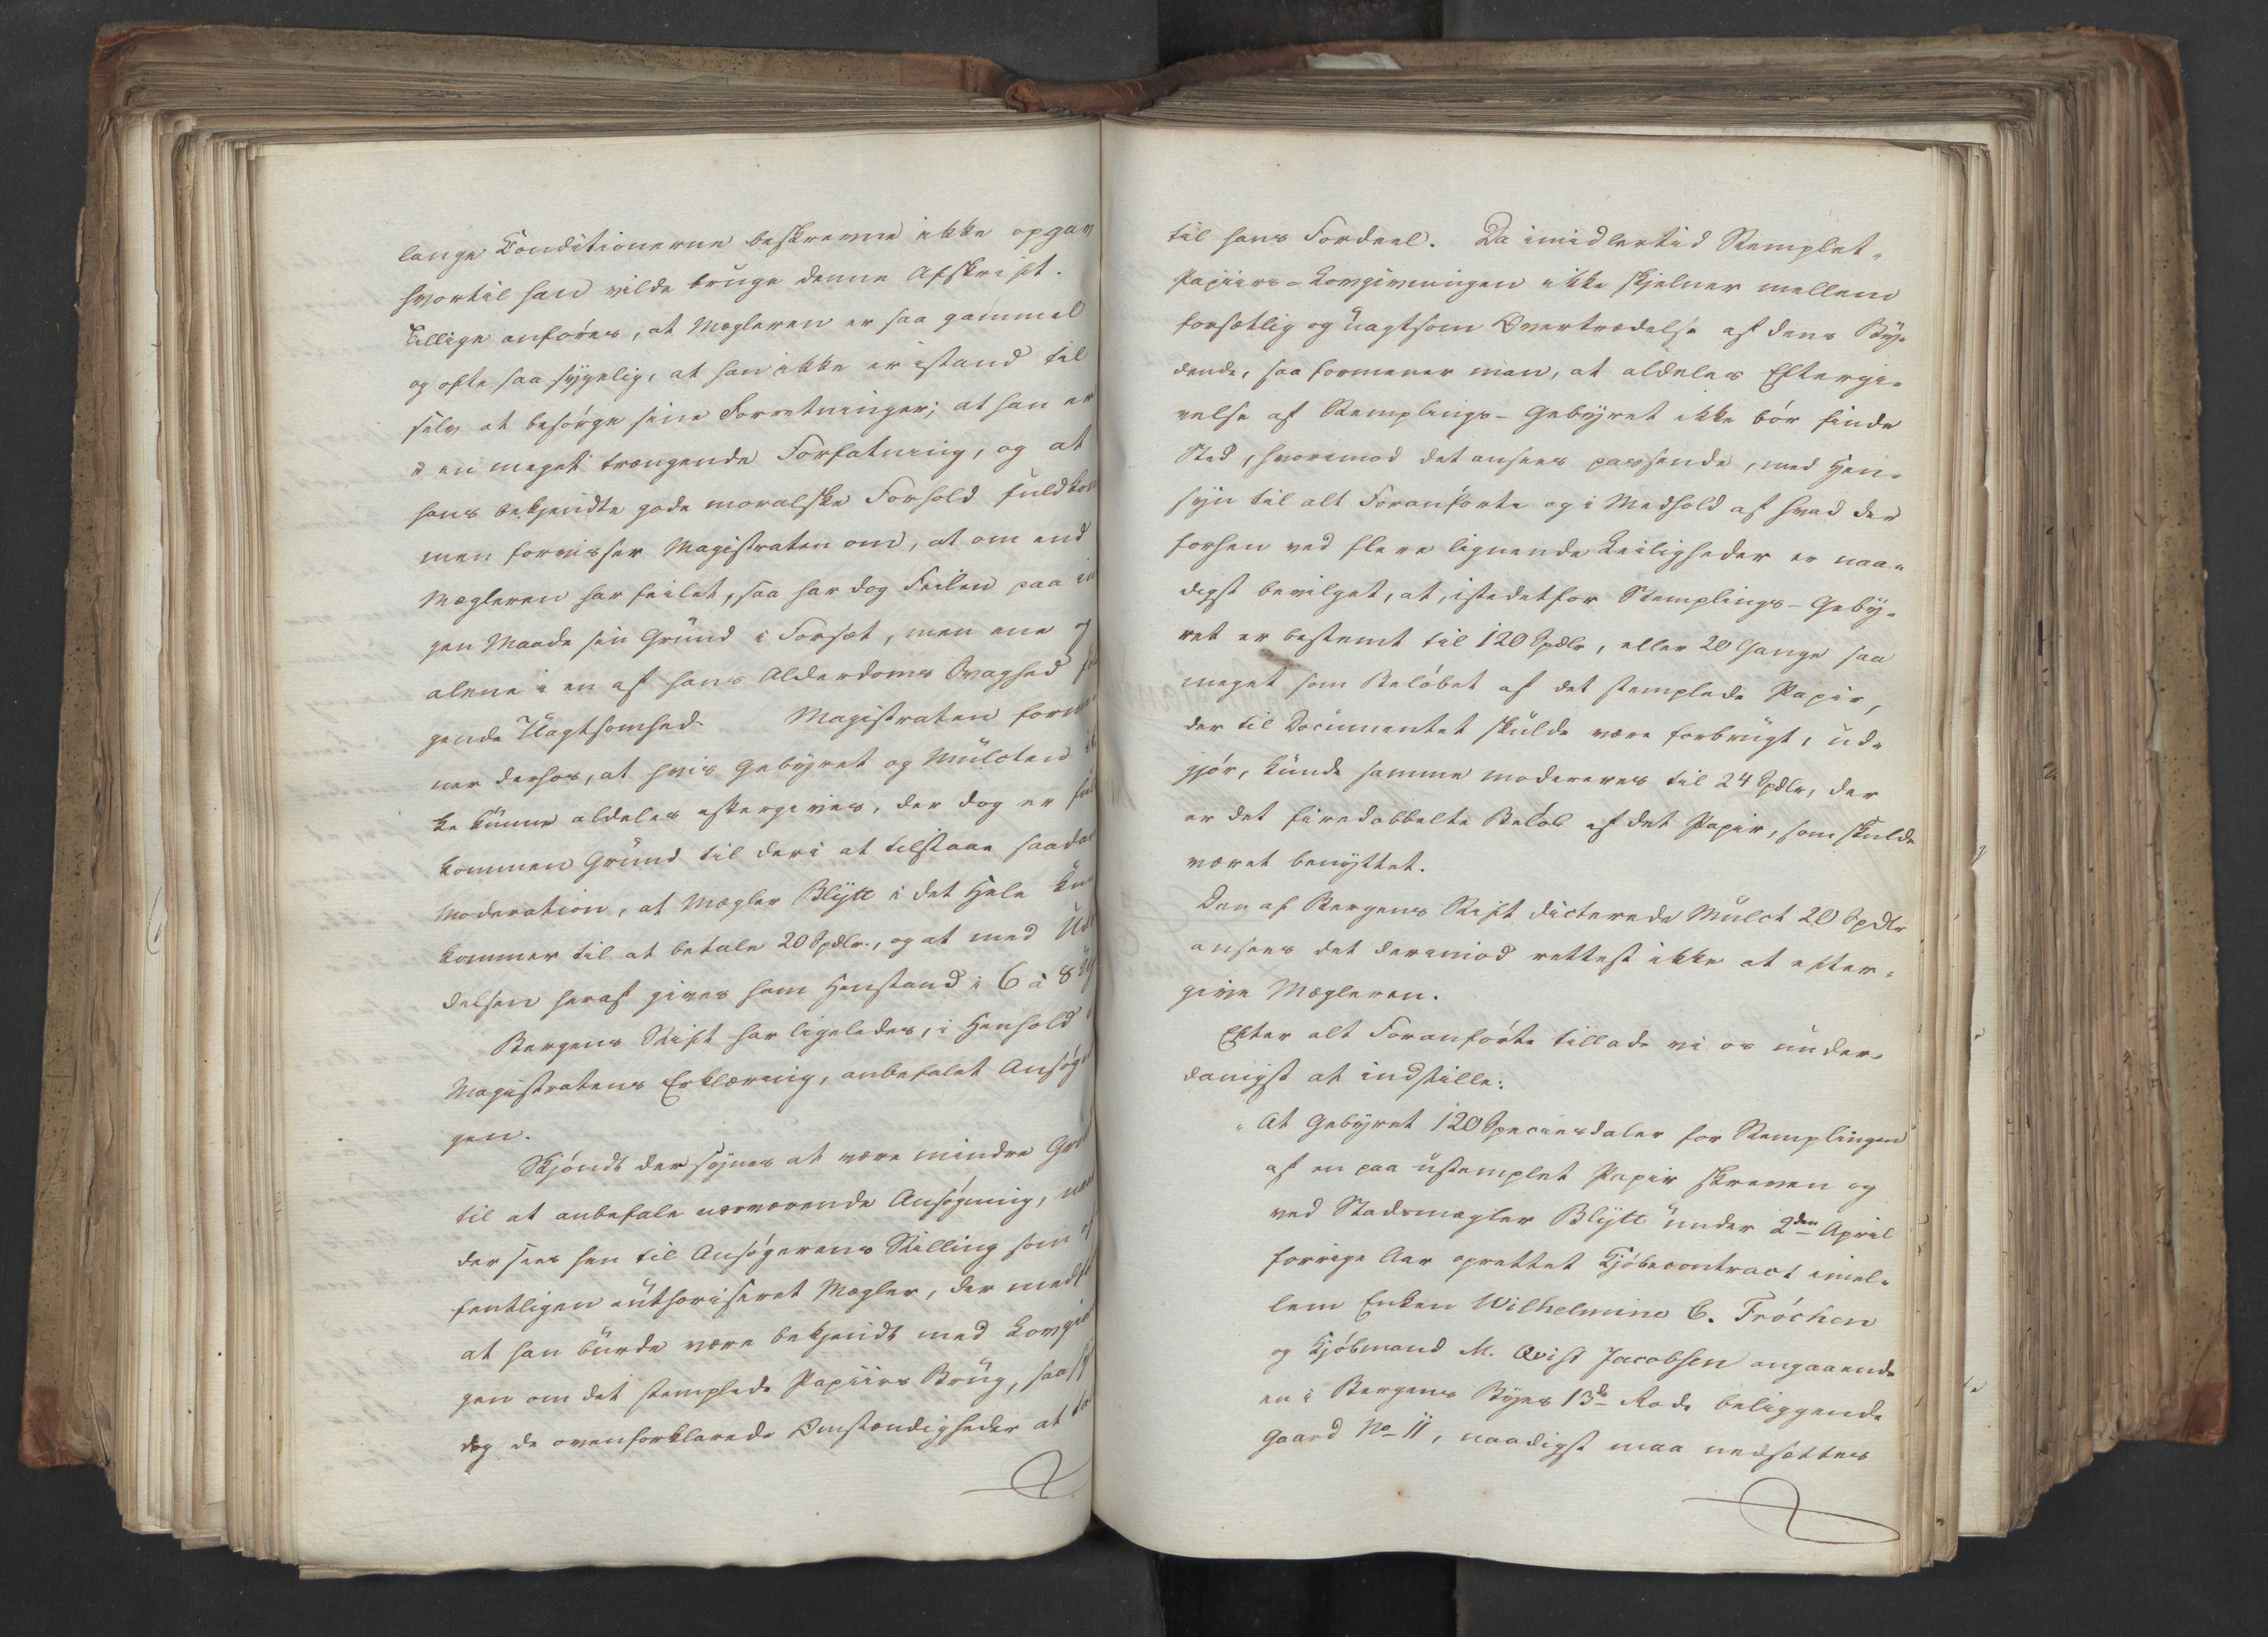 lange Conditionerne beskrevne ikke opgav
hvortil han vilde bruge denne Afskrift.
Tillige anføres, at Mægleren er saa gammel
og ofte saa sygelig, at han ikke er istand til
selv at besørge sine Forretninger; at han er
i en meget trængende Forfatning, og at
hans bekjendte gode moralske Forhold fuldkom
men forvisser Magistraten om, at om end
Mægleren har feilet, saa har dog Feilen paa in
gen Maade sin Grund i Forsæt, men ene og
alene i en af hans Alderdoms Svaghed føl
gende Uagtsomhed. Magistraten formee
ner derhos, at hvis Gebyret og Mulcten ik
ke kunne aldeles eftergives, der dog er fuld
kommen Grund til deri at tilstaae saadan
Moderation, at Mægler Blytt i det Hele kun
kommer til at betale 20 Spdlr., og at med Ud
delsen heraf gives ham Henstand i 6 à 8
Bergens Stift har ligeledes, i Henhold
Magistratens Erklæring, anbefalet Ansøgnin
gen.
Skjøndt der synes at være mindre Grund
til at anbefale nærværende Ansøgning, naar
der sees hen til Ansøgerens Stilling som of
fentligen authoriseret Mægler, der medfør
at han burde være bekjendt med Lovgivnin
gen om det stemplede Papiirs Brug, saa synes
dog de ovenforklarede Omstændigheder at tale
til hans Fordeel. Da imidlertid Stemplet-
Papiirs-Lovgivningen ikke skjelner mellem
forsætlig og uagtsom Overtrædelse af dens By-
dende, saa formener man, at aldeles Eftergi-
velse af Stemplings-Gebyret ikke bør finde
Sted, hvorimod det ansees passende, med Hen-
syn til alt Foranførte og i Medhold af hvad der
forhen ved flere lignende Leiligheder er naa-
digst bevilget, at, istedetfor Stemplings-Geby-
ret er bestemt til 120 Spdlr, eller 20 Gange saa
meget som Beløbet af det stemplede Papir,
der til Documentet skulde være forbrugt, ud-
gjør, kunde samme modereres til 24 Spdlr, der
er det firedobbelte Beløb af det Papir, som skulde
været benyttet.
Den af Bergens Stift dicterede Mulct 20 Spdlr
ansees det derimod rettest ikke at efter-
give Mægleren.
Efter alt Foranførte tillade vi os under-
danigst at indstille:
"At Gebyret 120 Speciesdaler for Stemplingen
af en paa ustemplet Papir skreven og
ved Stadsmægler Blytt under 2den April
forrige Aar oprettet Kjøbecontract imel-
lem Enken Wilhelmine C. Fröchen
og Kjøbmand M. Qvist Jacobsen angaaende
en i Bergens Byes 13de Rode beliggende
Gaard No 11, naadigst maa nedsættes